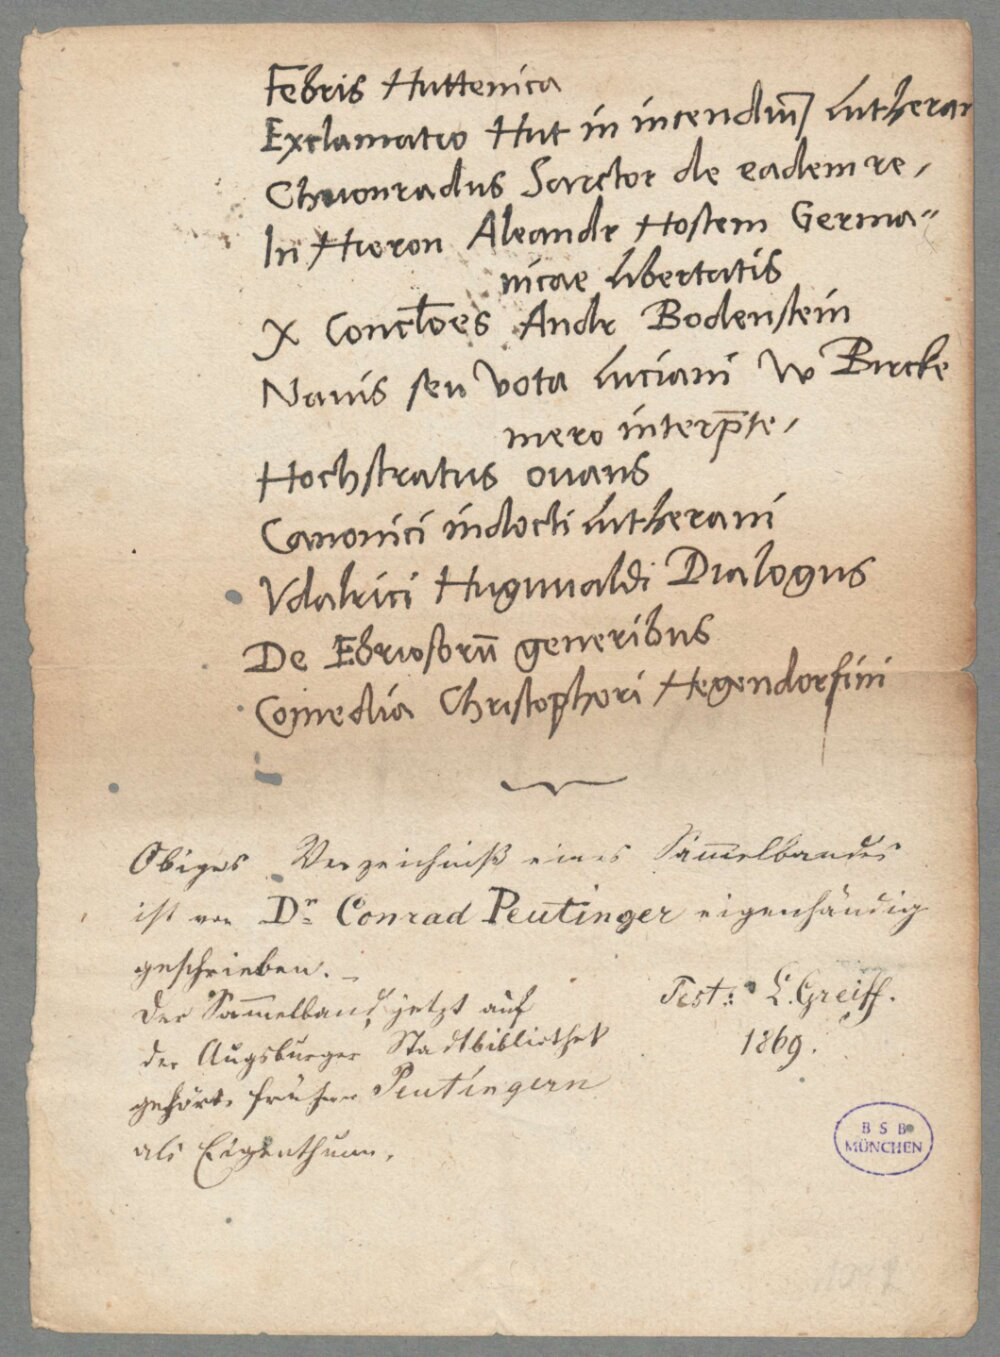 Febris Huttenica
Exclamatio Hut in incendiū Lutheran
Chuonradus Sarctor de eadem re,
In Hieron Aleandr Hostem Germa=
nicae libertatis
X Conclōes Andr Bodenstein
Nauis seu vota Luciani W Bircke
mero interp̄te,
Hochstratus ouans
Canonici indocti Lutherani
Vdalrici Hugwaldi Dialogus
De Ebriosorū generibus
Comedia Christophori Hegendorfini
Obiges Verzeichniß eines Sam̄elbandes
ist von Dr Conrad Peutinger eigenhändig
geschrieben. –
Der Sam̄elband, jetzt auf
der Augsburger Stadtbibliothek
gehörte früher Peutingern
als Eigenthum.
Test: L. Greiff.
1869.
BSB
MÜNCHEN